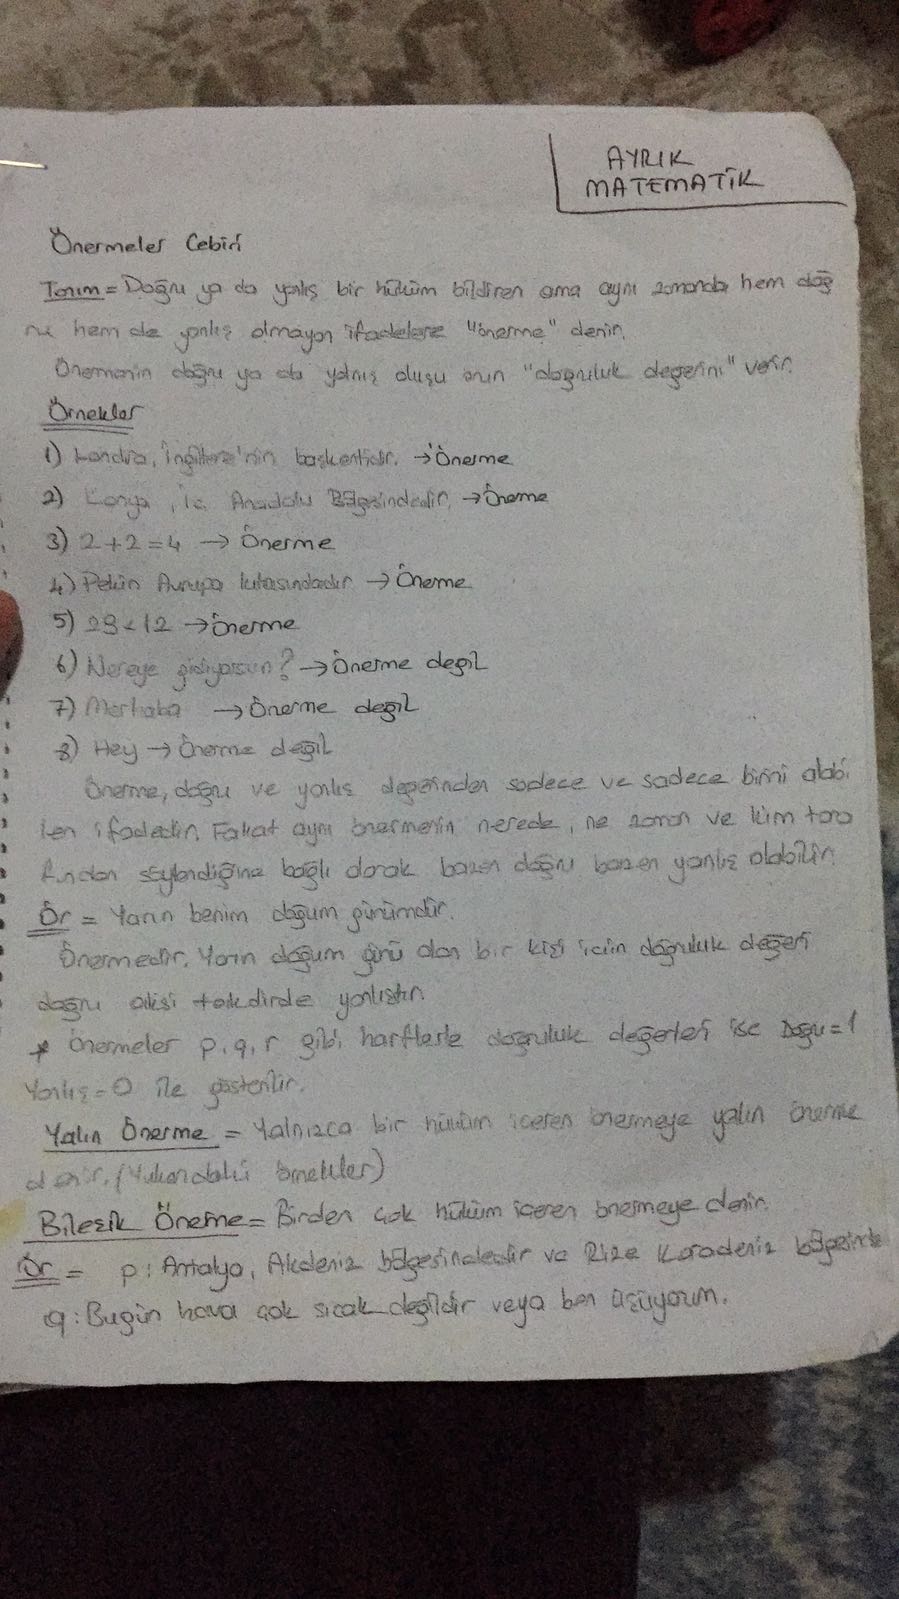 AYRIK
MATEMATİK
Önermeler Cebiri
Tanım = Doğru ya da yanlış bir hüküm bildiren ama aynı zamanda hem doğ
ru hem de yanlış olmayan ifadelere "önerme" denir.
Önermenin doğru ya da yalnış oluşu onun "doğruluk değerini" verir.
Örnekler
1) Londra, İngiltere'nin başkentidir. → Önerme
2) Konya, İç Anadolu Bölgesindedir. → Önerme
3) 2+2=4 → Önerme
4) Pekin Avrupa kıtasındadır → Önerme
5) 29<12 → Önerme
6) Nereye gidiyorsun? → Önerme değil
7) Merhaba → Önerme değil
8) Hey → Önerme değil
Önerme, doğru ve yanlış değerinden sadece ve sadece birini alabi
len ifadedir. Fakat aynı önermenin nerede, ne zaman ve kim tara
fından söylendiğine bağlı olarak bazen doğru bazen yanlış olabilir.
Ör = Yarın benim doğum günümdür.
Önermedir. Yarın doğum günü olan bir kişi için doğruluk değeri
doğru aksi takdirde yanlıştır.
* Önermeler p, q, r gibi harflerle doğruluk değerleri ise Doğru=1
Yanlış=0 ile gösterilir.
Yalın Önerme = Yalnızca bir hüküm içeren önermeye yalın önerme
denir. (Yukarıdaki örnekler)
Bileşik Önerme = Birden çok hüküm içeren önermeye denir.
Ör = p: Antalya, Akdeniz bölgesindedir ve Rize Karadeniz
q: Bugün hava çok sıcak değildir veya ben üşüyorum.